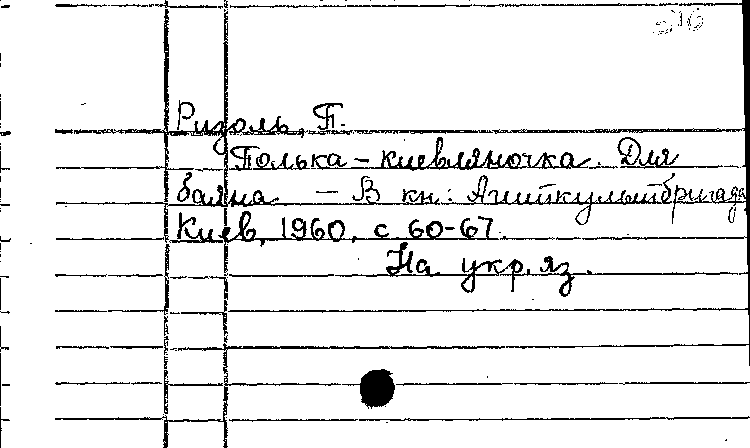 Ризоль, П.
Полька - киевляночка. Для
баяна. - В кн.: Агиткультбригада
Киев, 1960, с 60-67.
На укр. яз.